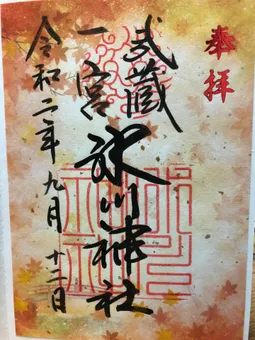 奉拝
武蔵
一宮
氷川神社
令和二年九月十二日